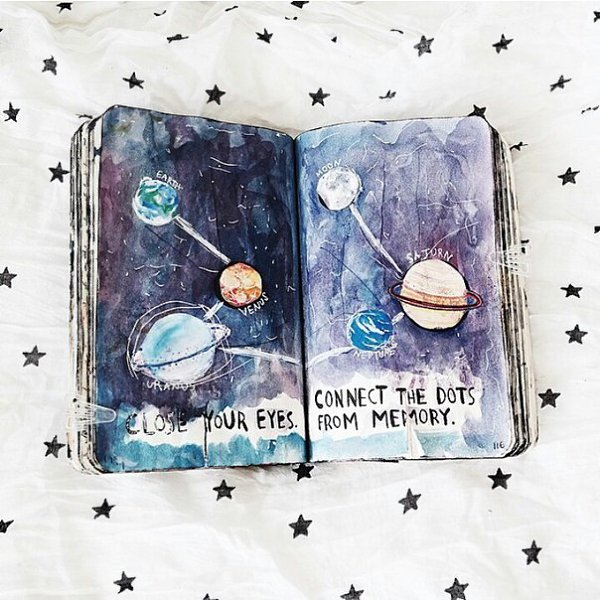 EARTH
VENUS
URANUS
CLOSE YOUR EYES.
MOON
SATURN
NEPTUNE
CONNECT THE DOTS
FROM MEMORY.
116